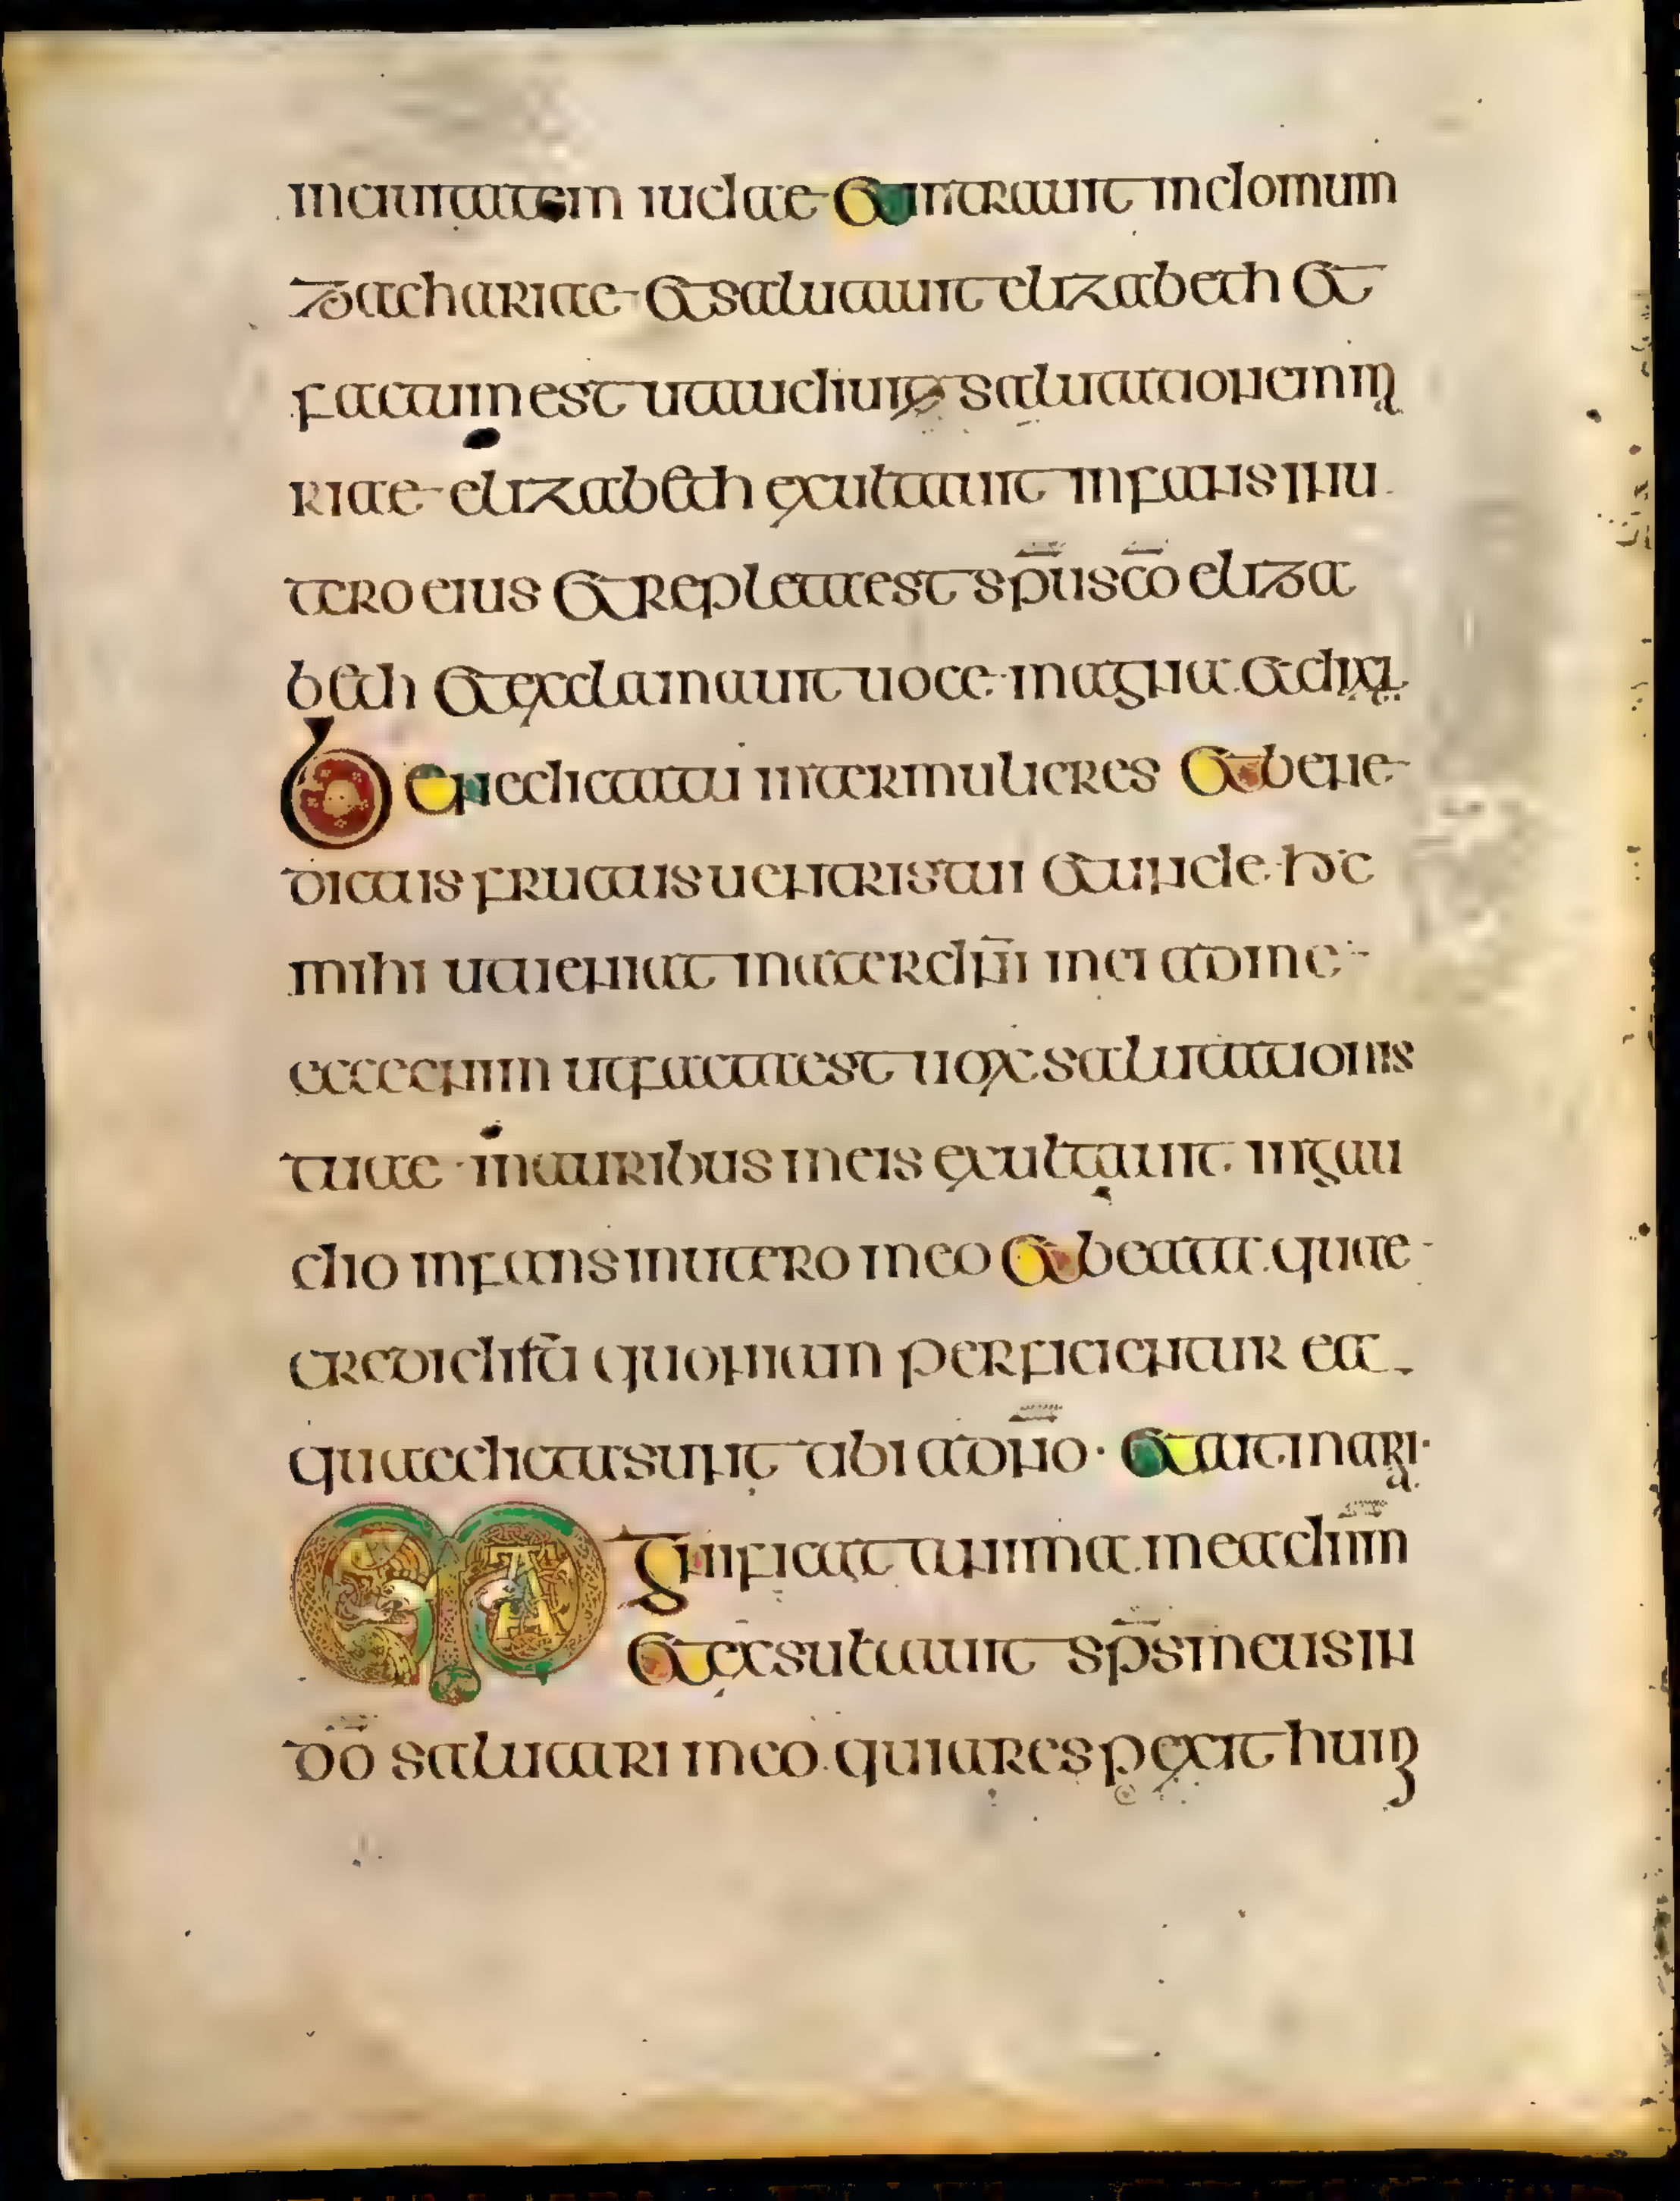 inciuitatem iudae &intrauit indomum
zachariae &salutauit elizabeth &
factum est utaudiuit salutationem ma
riae elizabeth exultauit infans inu
tero eius &repleta est sp̄u sc̄o eliza
beth &exclamauit uoce magna &dixit
Benedicta tu intermulieres &bene
dictus fructus uentris tui &unde hoc
mihi utueniat mater dn̄i mei adme
ecce enim utfacta est uox salutationis
tuae inauribus meis exultauit ingau
dio infans inutero meo &beata quae
credidit quoniam perficientur ea
quae dicta sunt tibi adn̄o · &ait mari
a
MAgnificat anima mea dn̄m
&exsultauit sp̄s meus in
dō salutari meo quia respexit humi